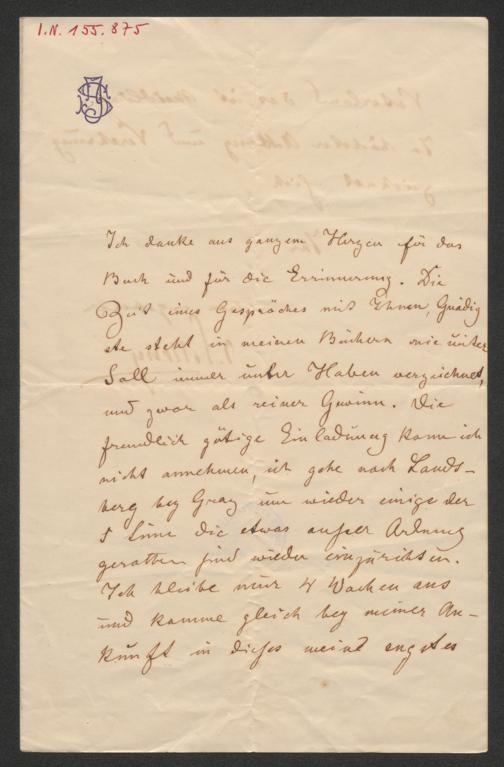 I.N. 155.875
Ich danke aus ganzem Herzen für das
Buch und für die Errinnerung. Die
Zeit eines Gespräches mit Ihnen, Gnädig
ste steht in meinen Büchern nie unter
Soll immer unter Haben verzeichnet,
und zwar als reiner Gewinn. Die
freundlich gütige Einladung kann ich
nicht annehmen, ich gehe nach Lands-
berg bey Graz um wieder einige der
5 Sinne die etwas außer Ordnung
gerathen sind wieder einzurichten.
Ich bleibe nur 4 Wochen aus
und komme gleich bey meiner An-
kunft in dieses mein engstes